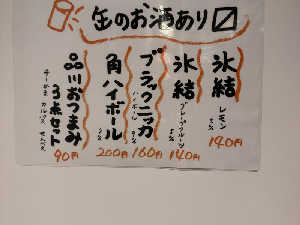 缶のお酒あり
氷結
レモン
5%
140円
氷結
グレープフルーツ
5%
140円
ブラックニッカ
ハイボール
9%
160円
角ハイボール
7%
200円
品川おつまみ
3点セット
チーかま カルパス せんべい
90円